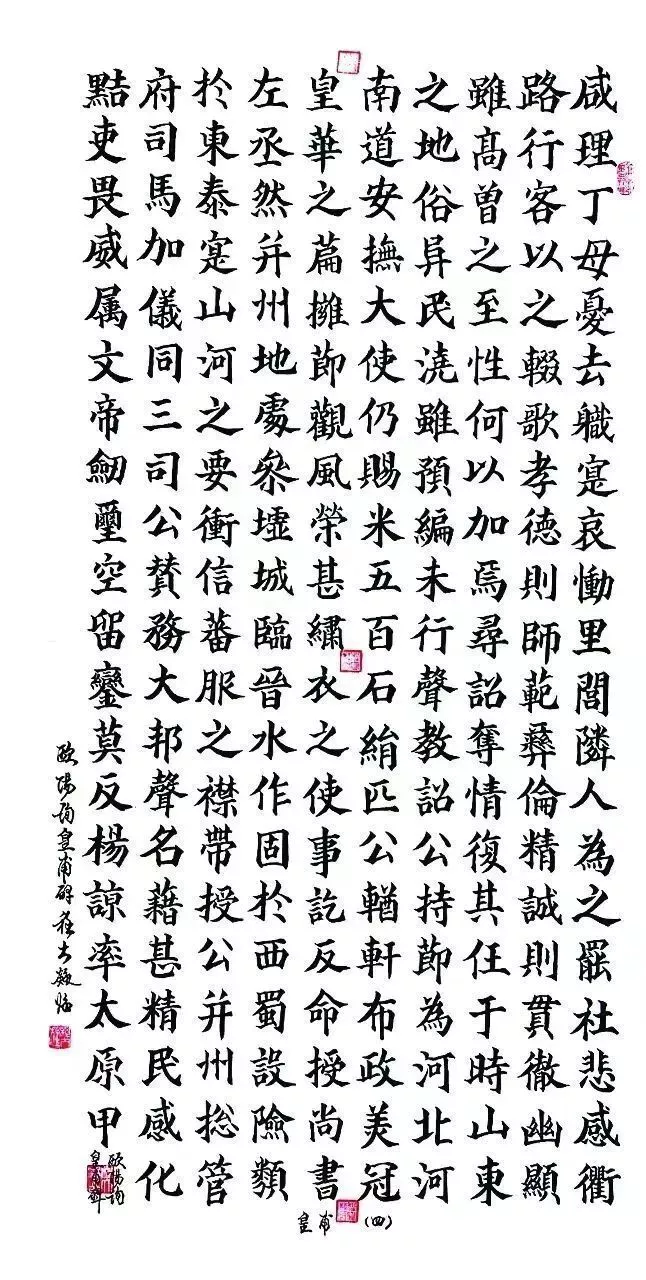 咸理丁母憂去職寔哀慟里閭隣人為之罷社悲感衢
路行客以之輟歌孝德則師範彝倫精誠則貫徹幽顯
雖髙曾之至性何以加焉尋詔奪情復其任于時山東
之地俗异民澆雖預編未行聲教詔公持節為河北河
南道安撫大使仍賜米五百石絹匹公輶軒布政美冠
皇華之篇擁節觀風榮甚繡衣之使事訖反命授尚書
左丞然并州地處參墟城臨晉水作固扵西蜀設險類
扵東泰寔山河之要衝信蕃服之襟帶授公并州捴管
府司馬加儀同三司公賛務大邦聲名藉甚精民感化
黠吏畏威属文帝劒璽空留鑾莫反楊諒率太原甲
歐陽詢皇甫碑
歐陽詢
皇甫碑
皇甫(四)